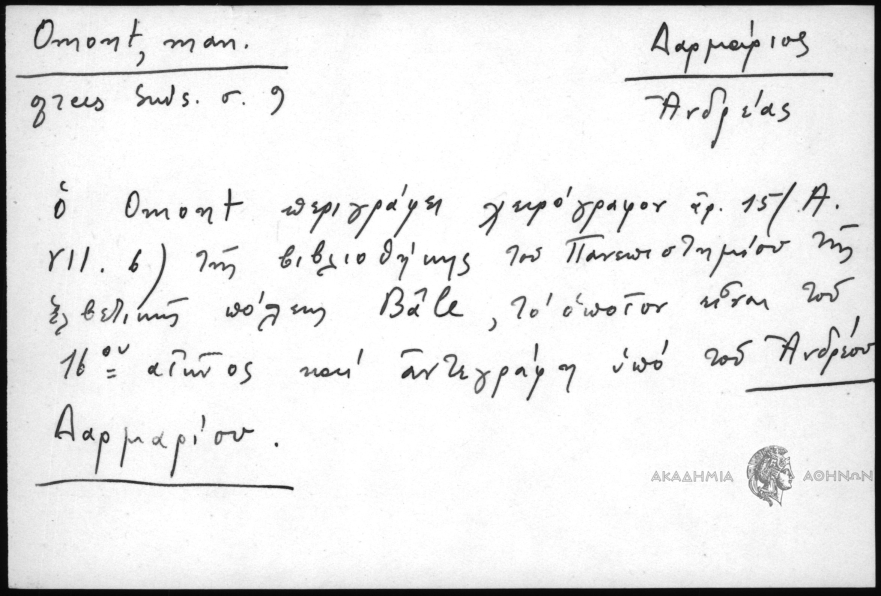 Omont, man.
grecs Suis. σ. 9
Δαρμάριος
Ἀνδρέας
ὁ Omont περιγράφει χειρόγραφον ἀρ. 15/A.
VII. 6) τῆς βιβλιοθήκης τοῦ Πανεπιστημίου τῆς
ἑλβετικῆς πόλεης Bâle, τὸ ὁποῖον εἶναι τοῦ
16ου αἰῶνος καὶ ἀντεγράφη ὑπό τοῦ Ἀνδρέου
Δαρμαρίου.
ΑΚΑΔΗΜΙΑ ΑΘΗΝΩΝ